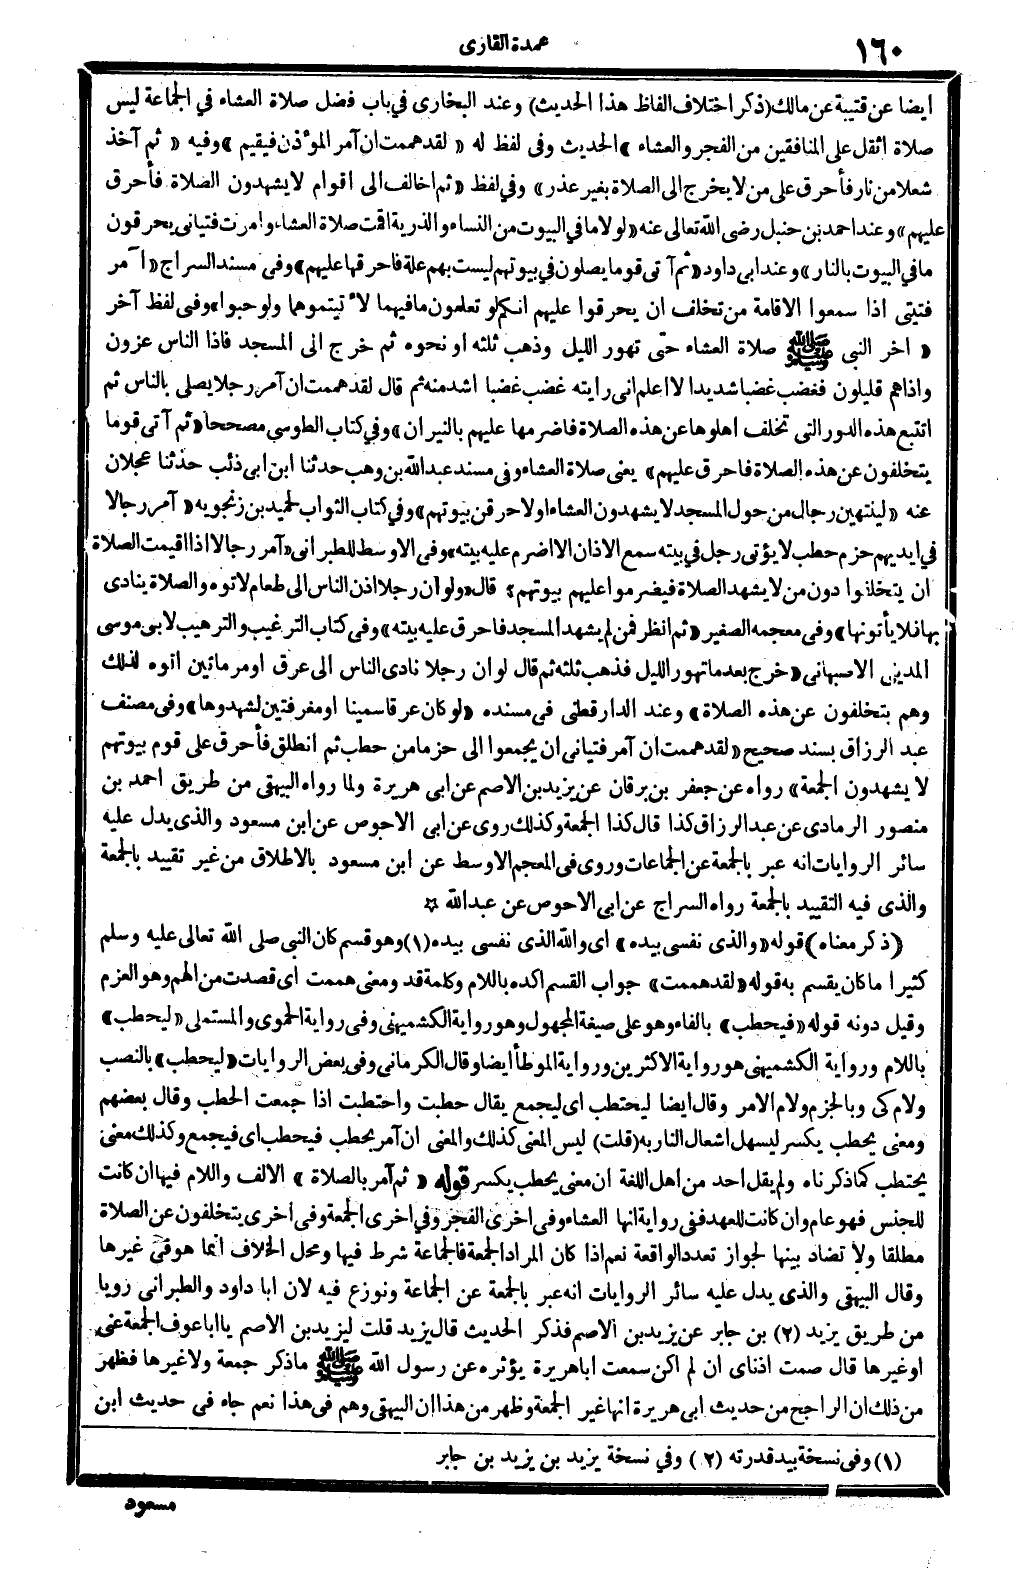 ١٦٠
عمدة القارى
ايضا عن قتيبة عن مالك (ذكر اختلاف الفاظ هذا الحديث) وعند البخارى في باب فضل صلاة العشاء في الجماعة ليس
صلاة اثقل على المنافقين من الفجر والعشاء» الحديث وفى لفظ له «لقد هممت ان آمر المؤذن فيقيم» وفيه «ثم آخذ
شعلا من نار فأحرق على من لا يخرج الى الصلاة بغير عذر» وفي لفظ «ثم اخالف الى اقوام لا يشهدون الصلاة فأحرق
عليهم» وعند احمد بن حنبل رضى الله تعالى عنه «لولا ما في البيوت من النساء والذرية اقمت صلاة العشاء وامرت فتيانى يحرقون
ما في البيوت بالنار» وعند ابى داود «ثم آتى قوما يصلون في بيوتهم ليست بهم علة فاحرقها عليهم» وفى مسند السراج «آمر
فتيتى اذا سمعوا الاقامة من تخلف ان يحرقوا عليهم انكم لو تعلمون ما فيهما لأتيتموهما ولو حبوا» وفى لفظ آخر
«اخر النبى ﷺ صلاة العشاء حتى تهور الليل وذهب ثلثه او نحوه ثم خرج الى المسجد فاذا الناس عزون
واذا هم قليلون فغضب غضبا شديدا لا اعلم انى رايته غضب غضبا اشد منه ثم قال لقد هممت ان آمر رجلا يصلى بالناس ثم
اتتبع هذه الدور التى تخلف اهلوها عن هذه الصلاة فاضرمها عليهم بالنيران» وفي كتاب الطوسي مصححا «ثم آتى قوما
يتخلفون عن هذه الصلاة فاحرق عليهم» يعنى صلاة العشاء وفى مسند عبد الله بن وهب حدثنا ابن ابى ذئب حدثنا عجلان
عنه «لينتهين رجال من حول المسجد لا يشهدون العشاء او لاحرقن بيوتهم» وفي كتاب الثواب لحميد بن زنجويه «آمر رجالا
في ايديهم حزم حطب لا يؤتى رجل في بيته سمع الاذان الا اضرم عليه بيته» وفى الاوسط للطبرانى «آمر رجالا اذا اقيمت الصلاة
ان يتخلفوا دون من لا يشهد الصلاة فيضرموا عليهم بيوتهم» قال «ولو أن رجلا اذن الناس الى طعام لاتوه والصلاة ينادى
بها فلا يأتونها» وفى معجمه الصغير «ثم انظر فمن لم يشهد المسجد فاحرق عليه بيته» وفى كتاب الترغيب والترهيب لابى موسى
المدينى الاصبهانى «خرج بعد ما تهور الليل فذهب ثلثه ثم قال لو ان رجلا نادى الناس الى عرق او مرماتين اتوه لذلك
وهم يتخلفون عن هذه الصلاة» وعند الدارقطنى في مسنده «لو كان عرقا سمينا او مغرفتين لشهدوها» وفى مصنف
عبد الرزاق بسند صحيح «لقد هممت ان آمر فتيانى ان يجمعوا الى حزما من حطب ثم انطلق فأحرق على قوم بيوتهم
لا يشهدون الجمعة» رواه عن جعفر بن برقان عن يزيد بن الاصم عن ابى هريرة ولما رواه البيهقى من طريق احمد بن
منصور الرمادى عن عبد الرزاق كذا قال كذا الجمعة وكذلك روى عن ابى الاحوص عن ابن مسعود والذى يدل عليه
سائر الروايات انه عبر بالجمعة عن الجماعات وروى فى المعجم الاوسط عن ابن مسعود بالاطلاق من غير تقييد بالجمعة
والذى فيه التقييد بالجمعة رواه السراج عن ابى الاحوص عن عبد الله ☆
(ذكر معناه) قوله «والذى نفسى بيده» اى والله الذى نفسى بيده (١) وهو قسم كان النبى صلى الله تعالى عليه وسلم
كثيرا ما كان يقسم به قوله «لقد هممت» جواب القسم اكده باللام وكلمة قد ومعنى هممت اى قصدت من الهم وهو العزم
وقيل دونه قوله «فيحطب» بالفاء وهو على صيغة المجهول وهو رواية الكشميهنى وفى رواية الحموى والمستملى «ليحطب»
باللام ورواية الكشميهنى هو رواية الاكثرين ورواية الموطأ ايضا وقال الكرمانى وفى بعض الروايات «ليحطب» بالنصب
ولام كى وبالجزم ولام الامر وقال ايضا ليحتطب اى ليجمع يقال حطبت واحتطبت اذا جمعت الحطب وقال بعضهم
ومعنى يحطب يكسر ليسهل اشعال النار به (قلت) ليس المعنى كذلك والمعنى ان آمر بحطب فيحطب اى فيجمع وكذلك معنى
يحتطب كما ذكرناه ولم يقل احد من اهل اللغة ان معنى يحطب يكسر قوله «ثم آمر بالصلاة» الالف واللام فيها ان كانت
للجنس فهو عام وان كانت للعهد ففى رواية انها العشاء وفى اخرى الفجر وفي اخرى الجمعة وفى اخرى يتخلفون عن الصلاة
مطلقا ولا تضاد بينها لجواز تعدد الواقعة نعم اذا كان المراد الجمعة فالجماعة شرط فيها ومحل الخلاف انما هو في غيرها
وقال البيهقى والذى يدل عليه سائر الروايات انه عبر بالجمعة عن الجماعة ونوزع فيه لان ابا داود والطبرانى رويا
من طريق يزيد (٢) بن جابر عن يزيد بن الاصم فذكر الحديث قال يزيد قلت ليزيد بن الاصم يا ابا عوف الجمعة عنى
او غيرها قال صمت اذناى ان لم اكن سمعت ابا هريرة يؤثره عن رسول الله ﷺ ما ذكر جمعة ولا غيرها فظهر
من ذلك ان الراجح من حديث ابى هريرة انها غير الجمعة وظهر من هذا ان البيهقى وهم فى هذا نعم جاء فى حديث ابن
(١) وفى نسخة بيد قدرته (٢) وفي نسخة يزيد بن يزيد بن جابر
مسعود